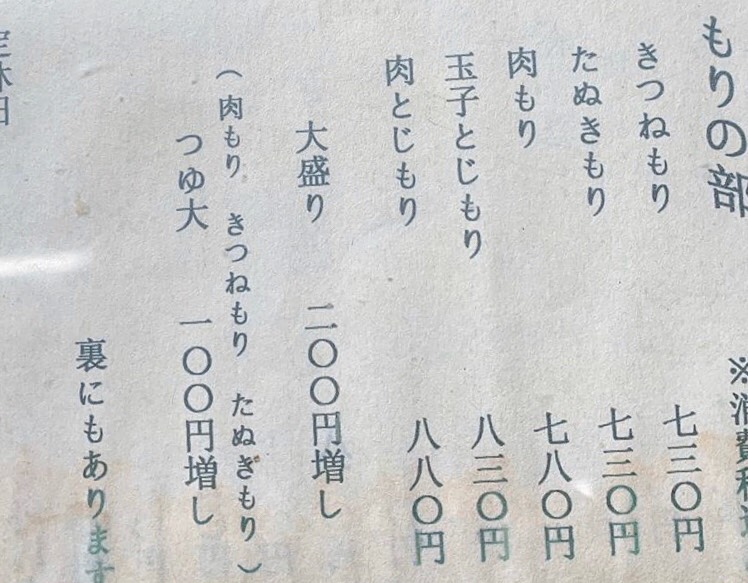 もりの部
※消費税込
きつねもり 七三〇円
たぬきもり 七三〇円
肉もり 七八〇円
玉子とじもり 八三〇円
肉とじもり 八八〇円
大盛り 二〇〇円増し
（肉もり きつねもり たぬぎもり）
つゆ大 一〇〇円増し
裏にもあります
定休日